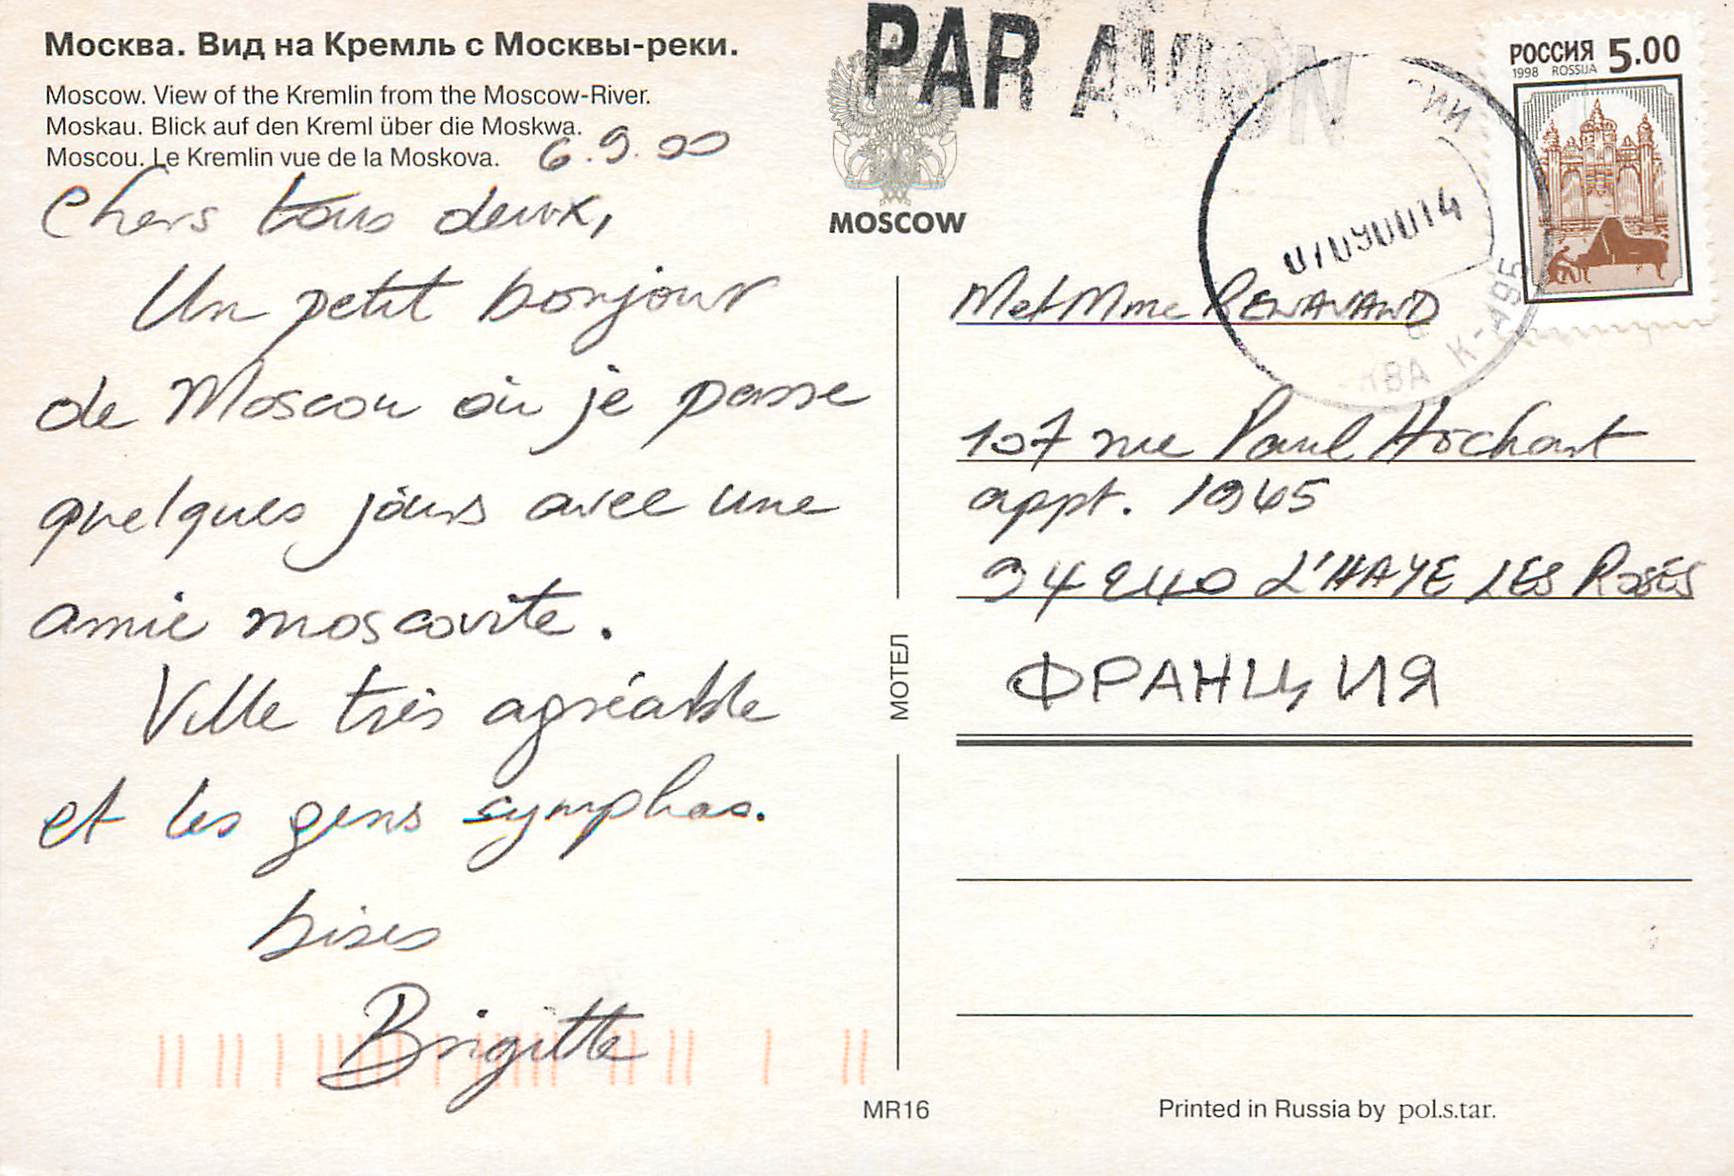 Москва. Вид на Кремль с Москвы-реки.
Moscow. View of the Kremlin from the Moscow-River.
Moskau. Blick auf den Kreml über die Moskwa.
Moscou. Le Kremlin vue de la Moskova.
6.9.00
Chers tous deux,
Un petit bonjour
de Moscou où je passe
quelques jours avec une
amie moscovite.
Ville très agréable
et les gens symphas.
bises
Brigitte
PAR AVION
MOSCOW
РОССИЯ 5.00
1998 ROSSIJA
0709000014
КВА К-495
M et Mme
107 rue Paul Hochart
appt. 1945
94240 L'HAYE LES ROSES
ФРАНЦИЯ
МОТЕЛ
MR16
Printed in Russia by pol.s.tar.